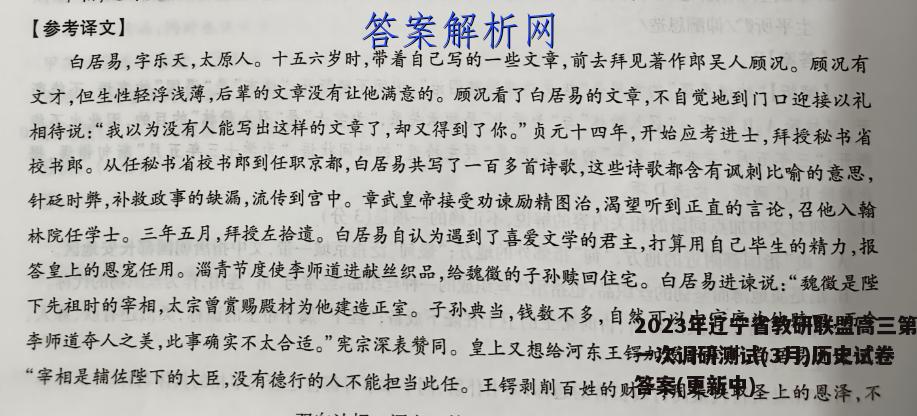 【参考译文】
答案解析网
白居易,字乐天,太原人。十五六岁时,带着自己写的一些文章,前去拜见著作郎吴人顾况。顾况有
文才,但生性轻浮浅薄,后辈的文章没有让他满意的。顾况看了白居易的文章,不自觉地到门口迎接以礼
相待说:“我以为没有人能写出这样的文章了,却又得到了你。”贞元十四年,开始应考进士,拜授秘书省
校书郎。从任秘书省校书郎到任职京都,白居易共写了一百多首诗歌,这些诗歌都含有讽刺比喻的意思,
针砭时弊,补救政事的缺漏,流传到宫中。章武皇帝接受劝谏励精图治,渴望听到正直的言论,召他入翰
林院任学士。三年五月,拜授左拾遗。白居易自认为遇到了喜爱文学的君主,打算用自己毕生的精力,报
答皇上的恩宠任用。淄青节度使李师道进献丝织品,给魏徵的子孙赎回住宅。白居易进谏说:“魏徵是陛
下先祖时的宰相,太宗曾赏赐殿材为他建造正室。子孙典当,钱数不多,自然可以
李师道夺人之美,此事确实不太合适。”宪宗深表赞同。皇上又想给河东王锷
“宰相是辅佐陛下的大臣,没有德行的人不能担当此任。王锷剥削百姓的财 圣上的恩泽,不
2023年辽宁省教研联盟高三第
一次调研测试(3月)历史试卷
答案(更新中)